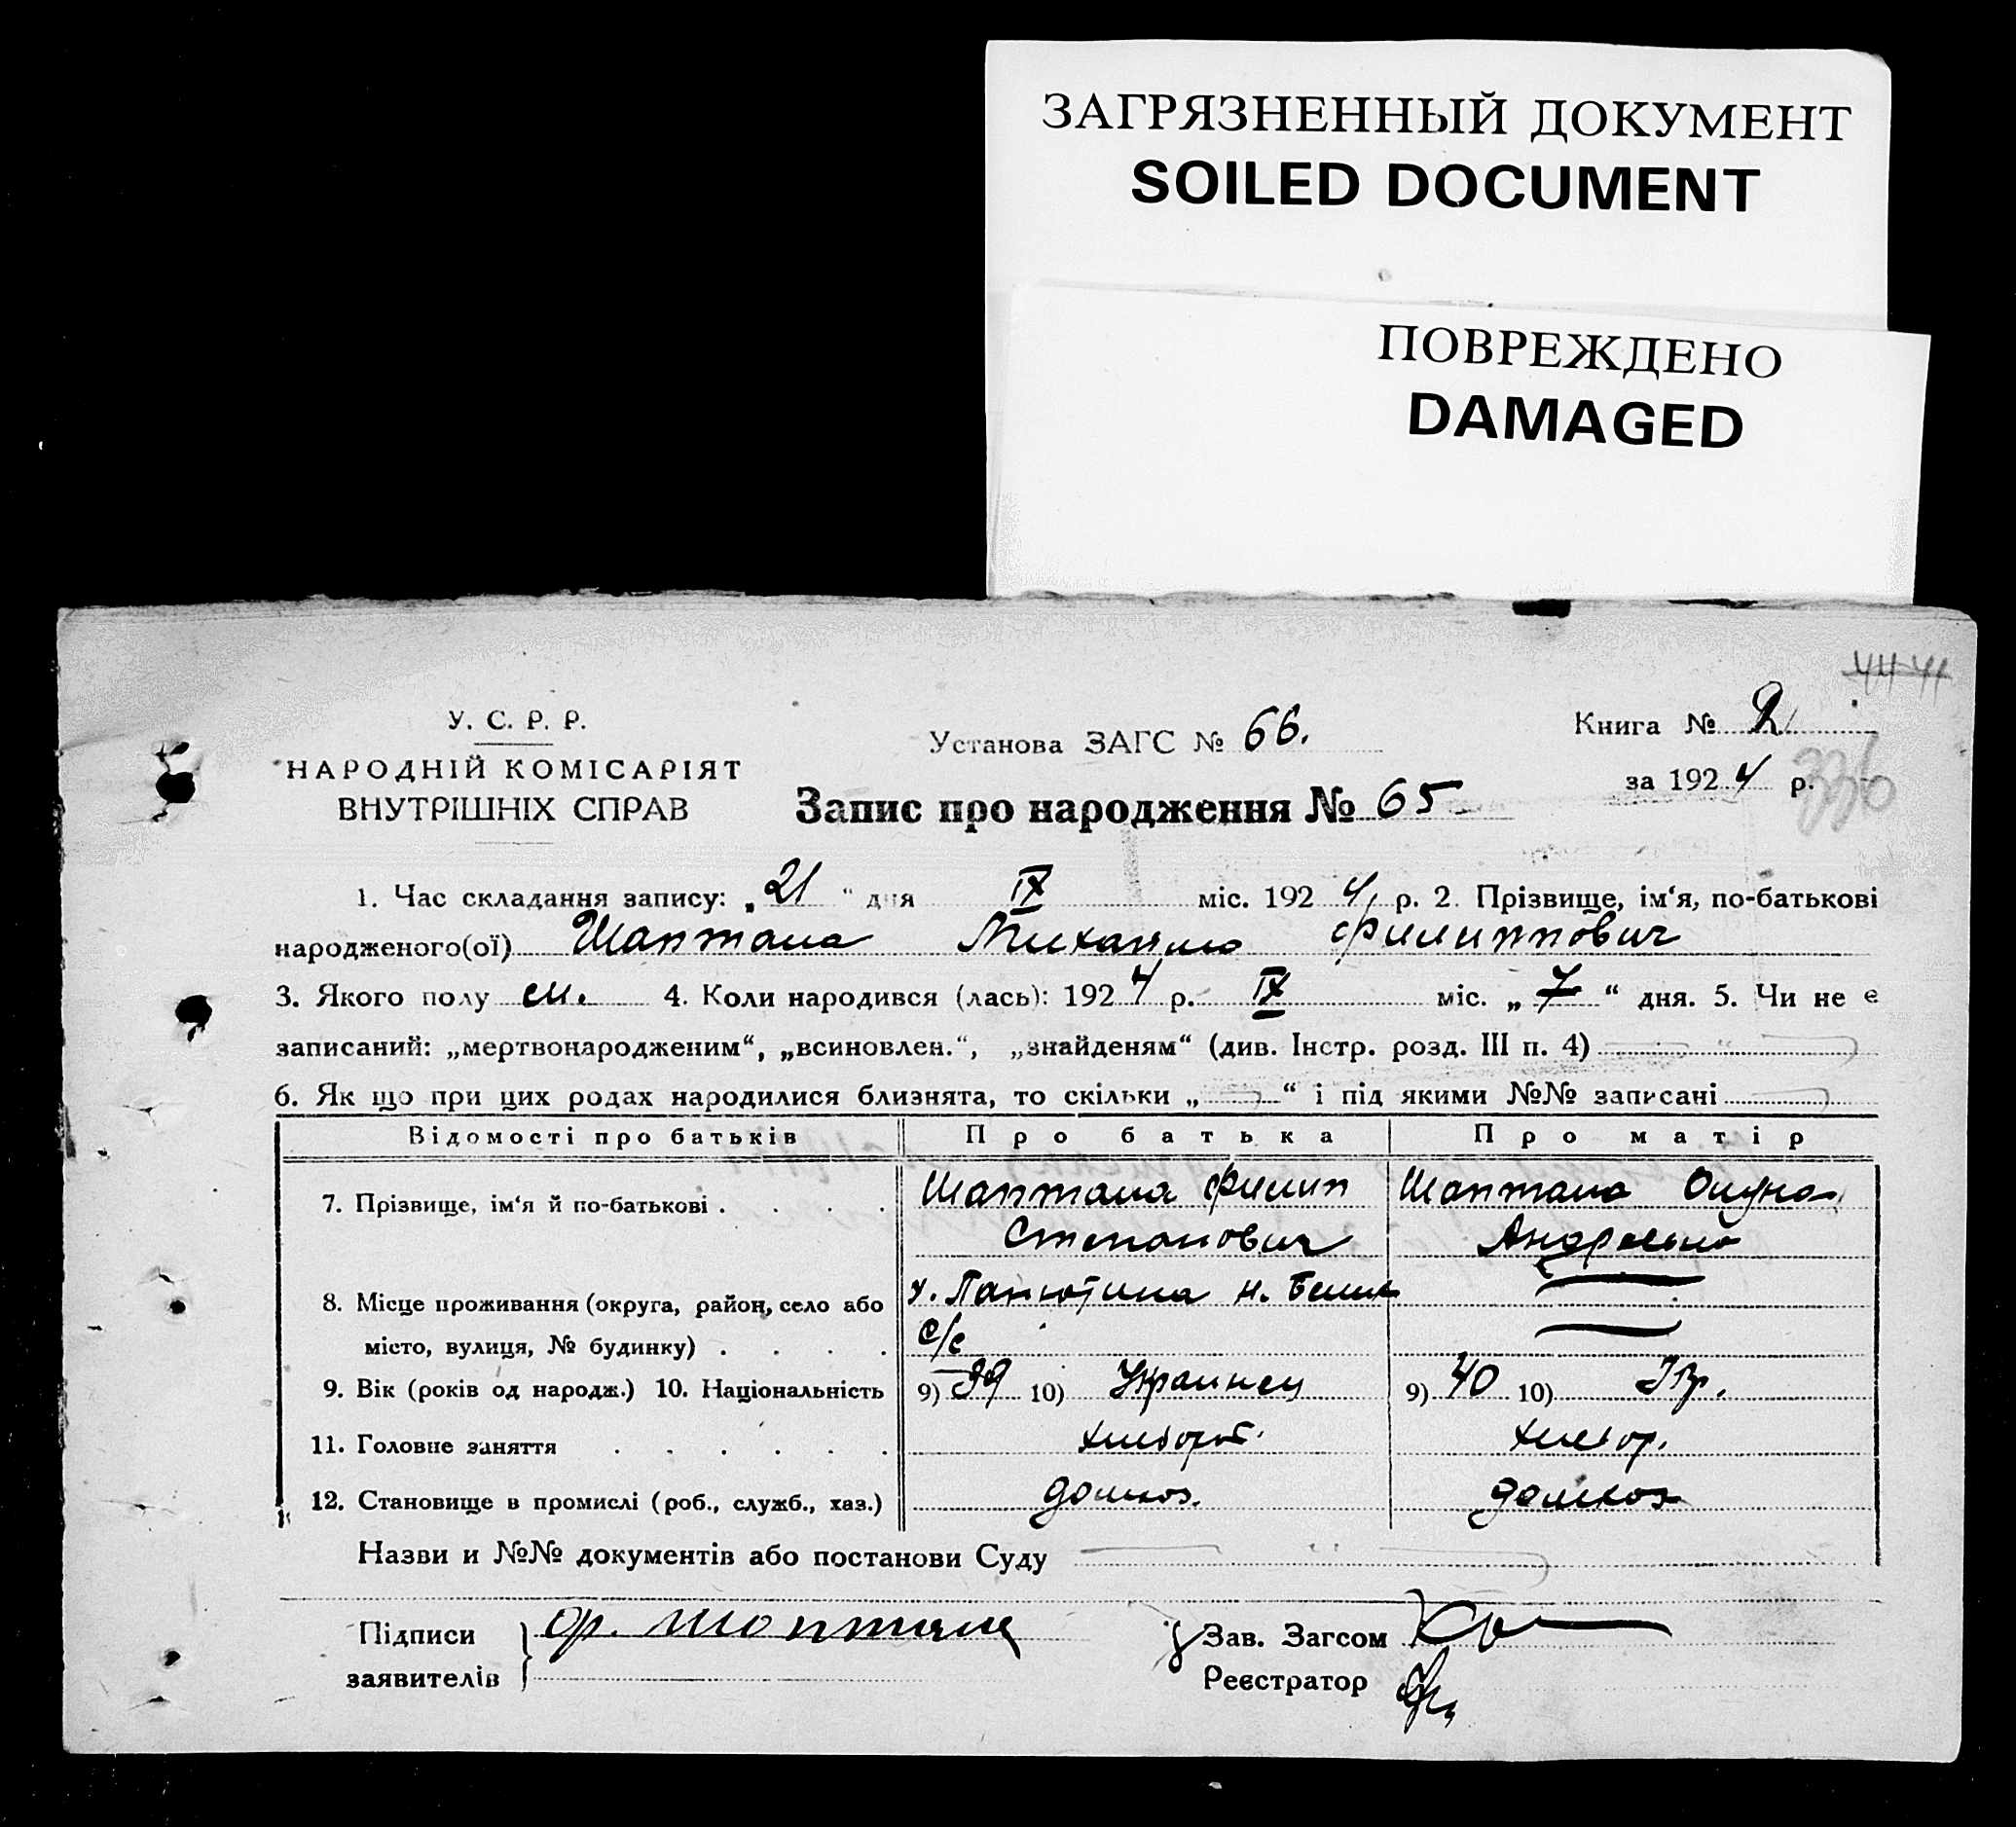 ЗАГРЯЗНЕННЫЙ ДОКУМЕНТ
SOILED DOCUMENT
ПОВРЕЖДЕНО
DAMAGED
У. С. Р. Р.
НАРОДНІЙ КОМІСАРІЯТ
ВНУТРІШНІХ СПРАВ
Установа ЗАГС № 66.
Книга № 2
за 1924 р.
Запис про народження № 65
1. Час складання запису: „21“ дня IX міс. 1924 р. 2. Прізвище, ім‘я, по-батькові
народженого(ої) Шаптала Михайло Филиппович
3. Якого полу м. 4. Коли народився (лась): 1924 р. IX міс. „7“ дня. 5. Чи не є
записаний: „мертвонародженим“, „всиновлен.“, „знайденям“ (див. Інстр. розд. III п. 4)
6. Як що при цих родах народилися близнята, то скільки „ “ і під якими №№ записані
Відомості про батьків Про батька Про матір
7. Прізвище, ім‘я й по-батькові . . . . Шаптала Филип Шаптала
Степанович
8. Місце проживання (округа, район, село або х. Панютина Н.
місто, вулиця, № будинку) . . . . с/с
9. Вік (років од народж.) 10. Національність 9) 39 10) Украинец 9) 40 10)
11. Головне заняття . . . . . . хлебороб. хлебор.
12. Становище в промислі (роб., служб., хаз.) домхоз. домхоз
Назви и №№ документів або постанови Суду
Підписи ф. Шоптала
заявителів
Зав. Загсом
Реєстратор